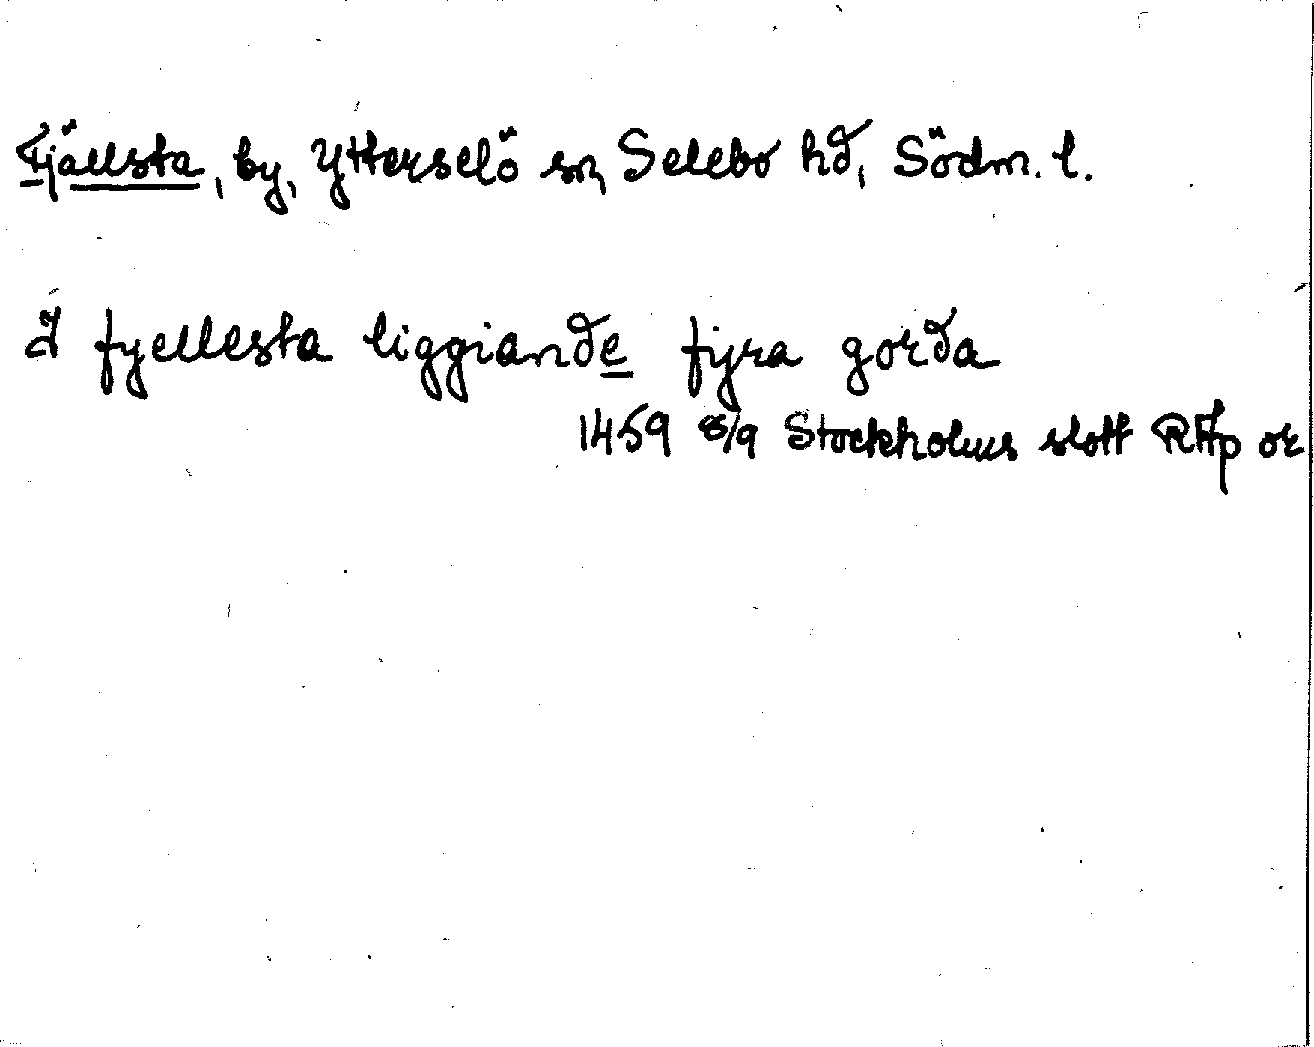 Fjällsta, by, Ytterselö sn, Selebo hd, Södm. l.
J fyellesta liggiande fyra gorda
1459 8/9 Stockholms slott RAp or